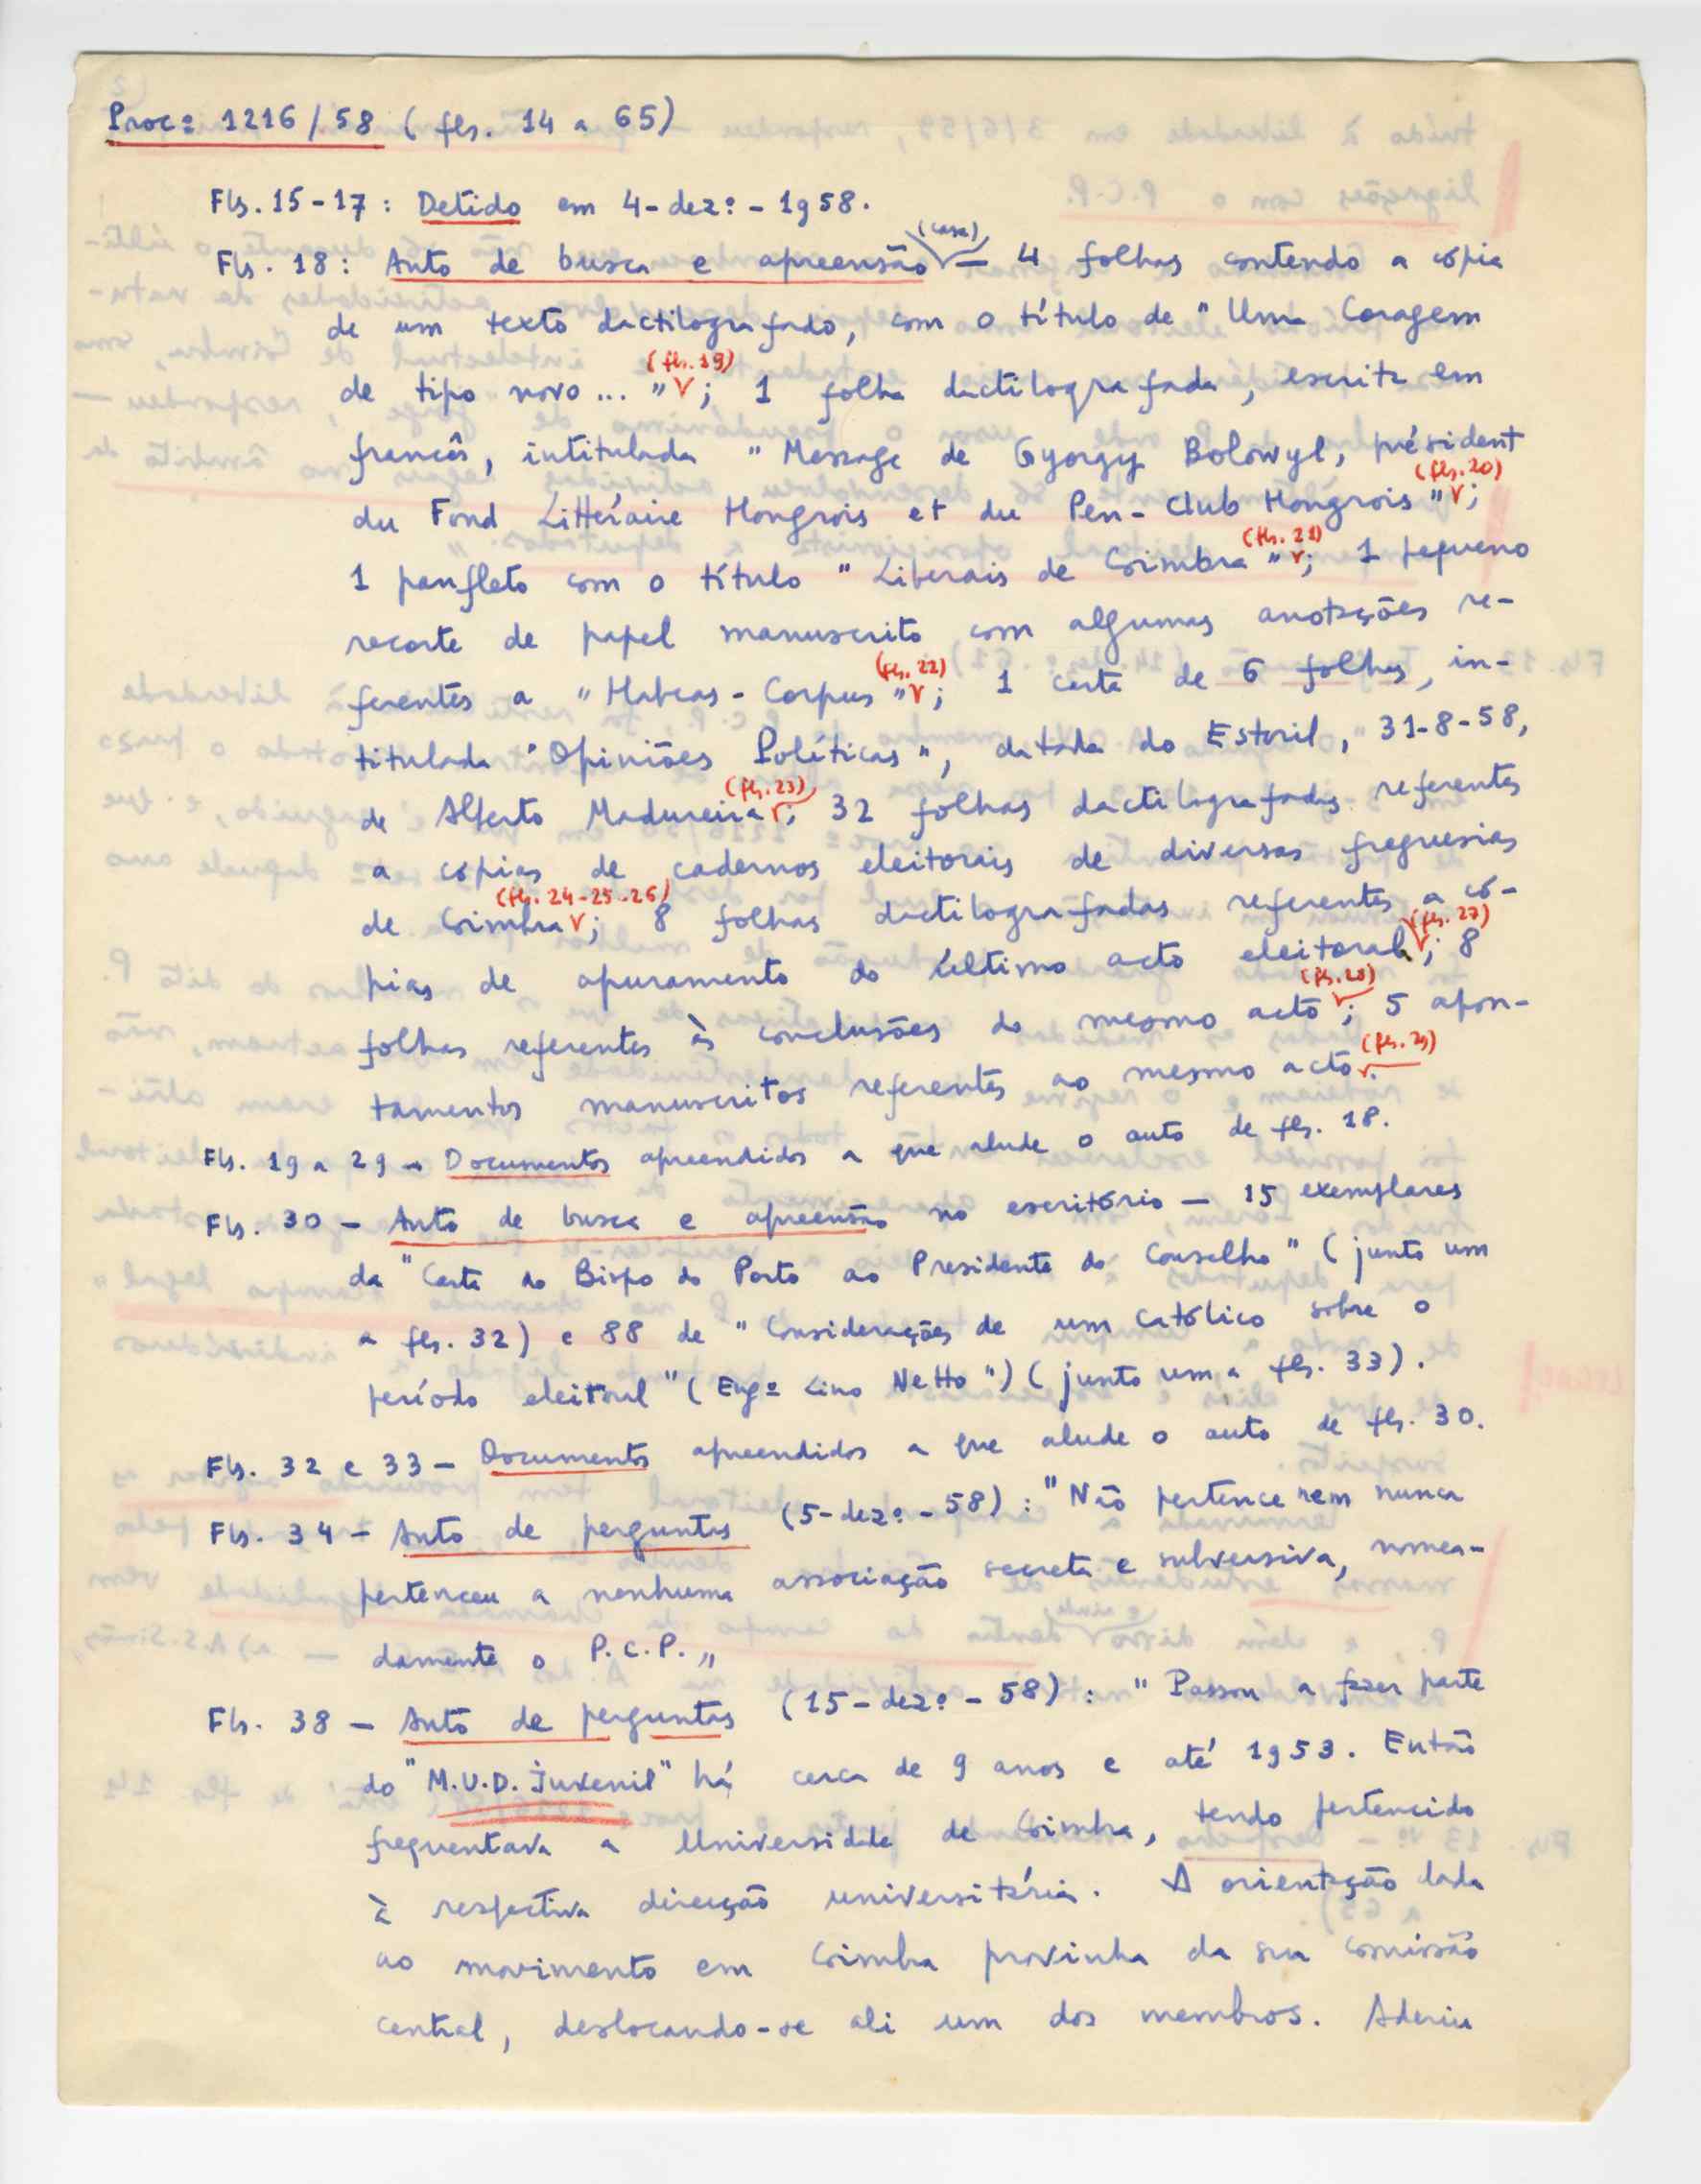 Proc.º 1216/58 (fls. 14 a 65)
Fls. 15-17: Detido em 4-dez.º-1958.
Fls. 18: Auto de busca e apreensão (casa) — 4 folhas contendo a cópia
de um texto dactilografado, com o título de "Uma Coragem
de tipo novo..." (fls. 19); 1 folha dactilografada, escrita em
francês, intitulada "Message de Gyorgy Bolowyl, président
du Fond Littéraire Hongrois et du Pen-Club Hongrois" (fls. 20);
1 panfleto com o título "Liberais de Coimbra" (fls. 21); 1 pequeno
recorte de papel manuscrito com algumas anotações re-
ferentes a "Habeas-Corpus" (fls. 22); 1 carta de 6 folhas, in-
titulada "Opiniões Políticas", datada do Estoril, 31-8-58,
de Alberto Madureira (fls. 23); 32 folhas dactilografadas referentes
a cópias de cadernos eleitorais de diversas freguesias
de Coimbra (fls. 24-25-26); 8 folhas dactilografadas referentes a có-
pias de apuramento do último acto eleitoral (fls. 27); 8
folhas referentes às conclusões do mesmo acto (fls. 28); 5 apon-
tamentos manuscritos referentes ao mesmo acto (fls. 29).
Fls. 19 a 29 — Documentos apreendidos a que alude o auto de fls. 18.
Fls. 30 — Auto de busca e apreensão no escritório — 15 exemplares
da "Carta do Bispo do Porto ao Presidente do Conselho" (junto um
a fls. 32) e 88 de "Considerações de um católico sobre o
período eleitoral" (Eng.º Lino Netto") (junto um a fls. 33).
Fls. 32 e 33 — Documentos apreendidos a que alude o auto de fls. 30.
Fls. 34 — Auto de perguntas (5-dez.º-58): "Não pertence nem nunca
pertenceu a nenhuma associação secreta e subversiva, nomea-
damente o P.C.P."
Fls. 38 — Auto de perguntas (15-dez.º-58): "Passou a fazer parte
do "M.U.D. Juvenil" há cerca de 9 anos e até 1953. Então
frequentava a Universidade de Coimbra, tendo pertencido
à respectiva direcção universitária. A orientação dada
ao movimento em Coimbra provinha da sua comissão
central, deslocando-se ali um dos membros. Aderiu